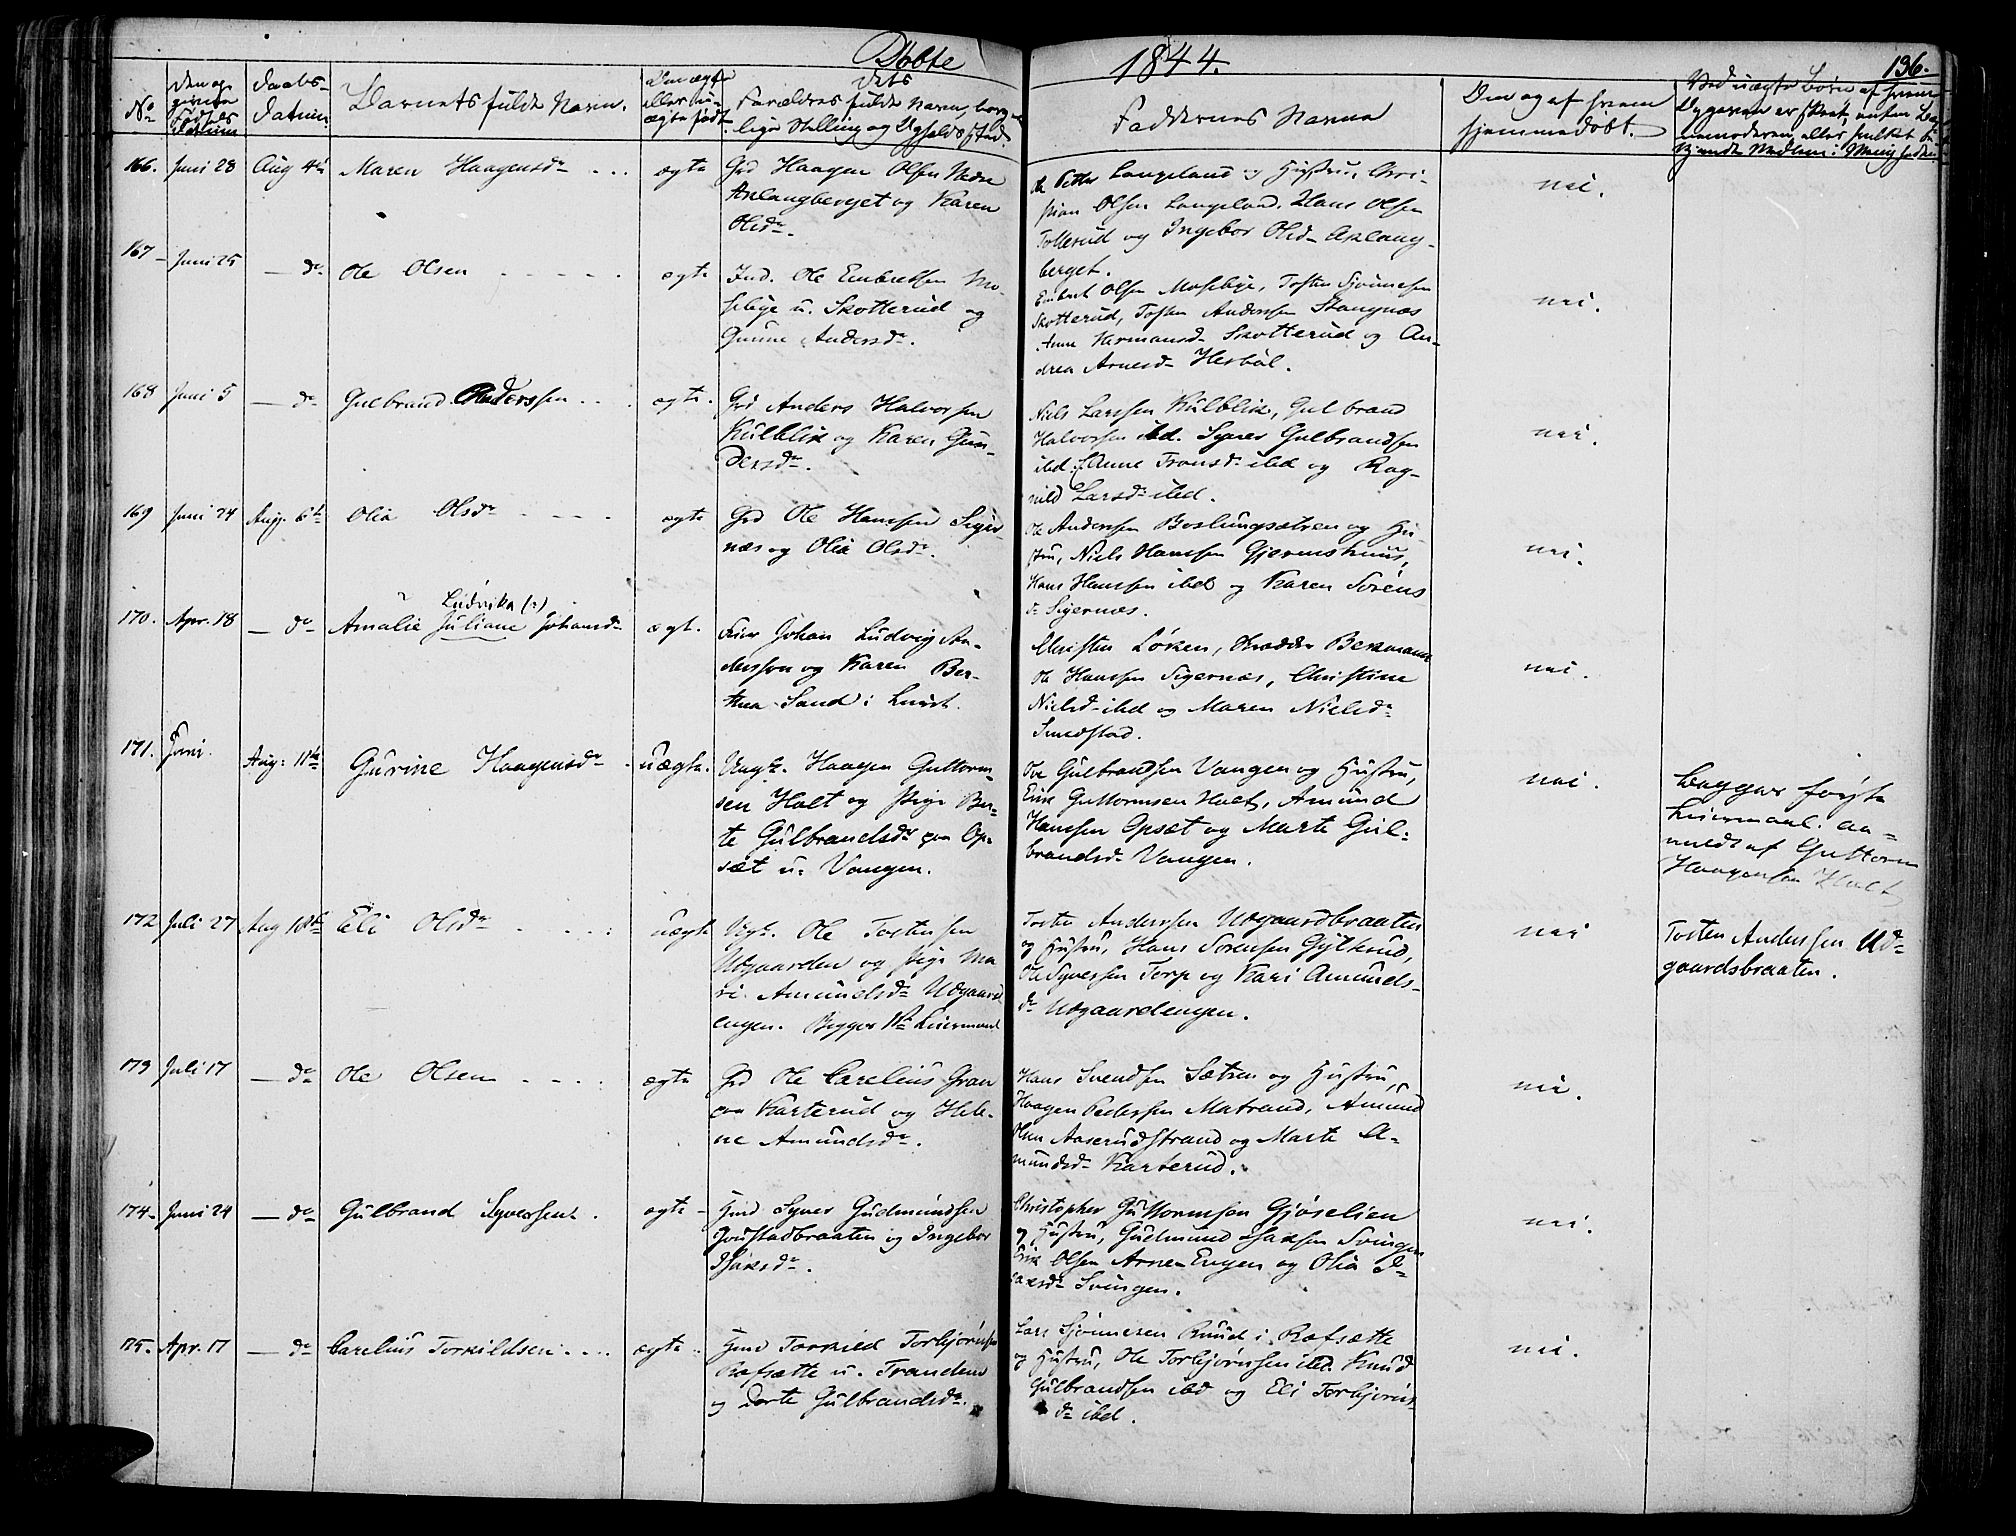 Döbte 1844. 136.
No
Den op-
givne
Födsels
Datum
Daabs-
Datum.
Barnets fulde Navn.
Om ægte
eller u-
ægte født.
Dets
Forældres fulde Navn, borger-
lige Stilling og Opholdssted.
Faddernes Navne
Om og af hvem
hjemmedöbt.
Ved uægte Börn af hvem
166. Juni 28 Aug 4de Maren Haagensdr ægte
Grd Haagen Olsen Nedre
Aklangberget og Karen
Olsdr.
Petter Langeland og Hustru, Chri-
stian Olsen Langeland. Hans Olsen
Tollerud og Ingebor Olsd. Aklang-
berget.
nei.
167 Juni 25 — do Ole Olsen ægte
Ind. Ole Embretsen Mo-
sebye u. Skotterud og
Gunne Andersdr.
Embret Olsen Mosebye, Tosten Sjönnesen
Skotterud, Tosten Anderssen Stangnæs
Anne Hermansd. Skotterud og An-
drea Arnesd. Hesböl.
nei.
168 Juni 5 — do Gulbrand Anderssen ægte.
Grd Anders Halvorsen
Kulblik og Karen Gun-
dersdr.
Niels Larssen Kulblik, Gulbrand
Halvorsen ibd. Syver Gulbrandsen
ibd. Anne Tronsd. ibd og Rag-
nild Larsd. ibd.
nei.
169 Juni 24 Aug. 6te Olia Olsdr ægte
Grd Ole Hanssen Siger-
næs og Olia Olsdr.
Ole Anderssen Boslungsætren og Hu-
stru, Niels Hanssen Gjermshuus,
Hans Hanssen ibd og Karen Sörens
dr Sigernæs.
nei.
170. Apr. 18 — do
Ludvika (?)
Amalie Juliane Johansdr ægt.
Johan Ludvig An-
derssen og Karen Ber-
thea Sand i Lunt.
Christen Löken, Berkmann
Ole Hanssen Sigernæs, Christine
Nielsd. ibd og Maren Nielsdr
Smedstad.
nei.
171. Juni. Aug: 11te Gurine Haagensdr uægte.
Ungk. Haagen Guttorm-
sen Holt og Pige Ber-
te Gulbrandsdr paa Op-
sæt u. Vangen.
Ole Gulbrandsen Vangen og Hustru,
Erik Guttormsen Holt, Amund
Hanssen Opsæt og Marte Gul-
brandsd. Vangen.
nei.
Begges förste
Leiermaal. an-
meldt af Guttorm
Haagensen Holt
172 Juli 27 Aug 18de Eli Olsdr uægte
Ungk. Ole Tostensen
Udgaarden og Pige Ma-
ri Amundsdr Udgaards
engen. Begges 1te Leiermaal
Tosten Anderssen Udgaardbraaten
og Hustru, Hans Sorensen Gylterud,
Ole Syversen Torp og Kari Amunds-
dr Udgaardengen.
nei
Tosten Anderssen Ud-
gaardsbraaten.
173 Juli 17 — do Ole Olsen ægte
Grd Ole Carelius Gran
paa Karterud og Hele-
ne Amundsdr.
Hans Svendsen Sætren og Hustru,
Haagen Pederssen Matrand, Amund
Olsen Aaserudstrand og Marte A-
mundsd. Karterud.
nei.
174 Juni 24 — do Gulbrand Syversen ægte
Hmd Syver Gudmundsen
Joustadbraaten og Ingebor
Isaksdr.
Christopher Guttormsen Gjöselien
og Hustru, Gudmund Isaksen Svingen
Erik Olsen Arne-Engen og Olia I-
saksd. Svingen.
nei.
175. Apr. 17 — do Carelius Torkildsen ægte
Hmd Torkild Torbjörnsen
Rafsætte u. Tranden
og Dorte Gulbrandsdr.
Lars Sjönnesen Ruud i Rafsætte
og Hustru, Ole Torbjörnsen ibd. Knud
Gulbrandsen ibd og Eli Torbjörns
dr ibd.
nei.